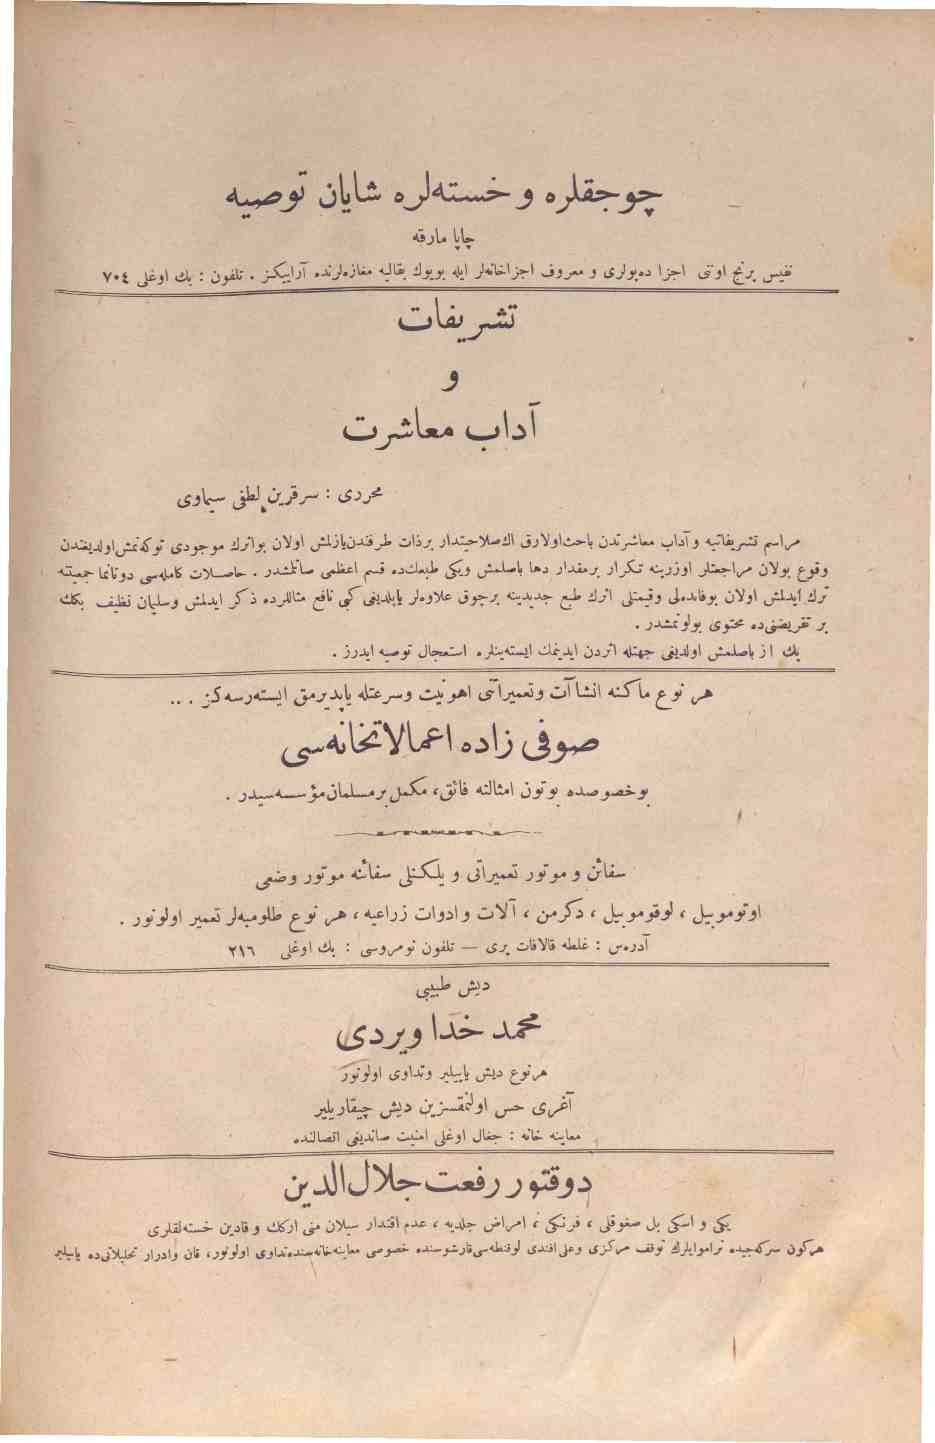 چوجقلره و خسته‌لره شایان توصیه
چاپا مارقه
نفیس پرنج اونی اجزا ده‌پولری و معروف اجزاخانه‌لر ایله بویوك بقالیه مغازه‌لرنده آراییكز . تلفون : بك اوغلی ٧٠٤
تشریفات
و
آداب معاشرت
محرری : سرقرین لطفی سیماوی
مراسم تشریفاتیه و آداب معاشرتدن باحث اولارق اك صلاحیتدار برذات طرفندن یازلمش اولان بواثرك موجودی توكه‌نمش اولدیغندن
وقوع بولان مراجعتلر اوزرینه تكرار برمقدار دها باصلمش ویكی طبعك ده قسم اعظمی صاتلمشدر . حاصلات كامله‌سی دونانما جمعیتنه
ترك ایدلمش اولان بوفائده‌لی وقیمتلی اثرك طبع جدیدینه برچوق علاوه‌لر یاپلدیغی كبی نافع مثاللرده ذكر ایدلمش وسلیمان نظیف بكك
بر تقریضنی ده محتوی بولونمشدر .
پك از باصلمش اولدیغی جهتله اثردن ایدینمك ایسته‌ینلره استعجال توصیه ایدرز .
هر نوع ماكنه انشاآت وتعمیراتنی اهونیت وسرعتله یاپدیرمق ایسته‌رسه‌كز ...
صوفی زاده اعمالاتخانه‌سی
بوخصوصده بوتون امثالنه فائق، مكمل برمسلمان مؤسسه‌سیدر .
سفائن و موتور تعمیراتی و یلكنلی سفائنه موتور وضعی
اوتوموبیل ، لوقوموبیل ، دكرمن ، آلات و ادوات زراعیه ، هر نوع طلومبه‌لر تعمیر اولونور .
آدره‌س : غلطه قالافات یری — تلفون نومروسی : بك اوغلی ٢١٦
دیش طبیبی
محمد خدا ویردی
هرنوع دیش یاپیلیر وتداوی اولونور
آغری حس اولنمقسزین دیش چیقاریلیر
معاینه خانه : جغال اوغلی امنیت صاندیغی اتصالنده
دوقتور رفعت جلال‌الدین
یكی و اسكی بل صغوقلی ، فرنكی ، امراض جلدیه ، عدم اقتدار سیلان منی اركك و قادین خسته‌لقلری
هركون سركه‌جیده تراموایلرك توقف مركزی وعلی افندی لوقنطه‌سی قارشوسنده خصوصی معاینه‌خانه‌سنده تداوی اولونور، قان وادرار تحلیلاتی ده یاپیلیر